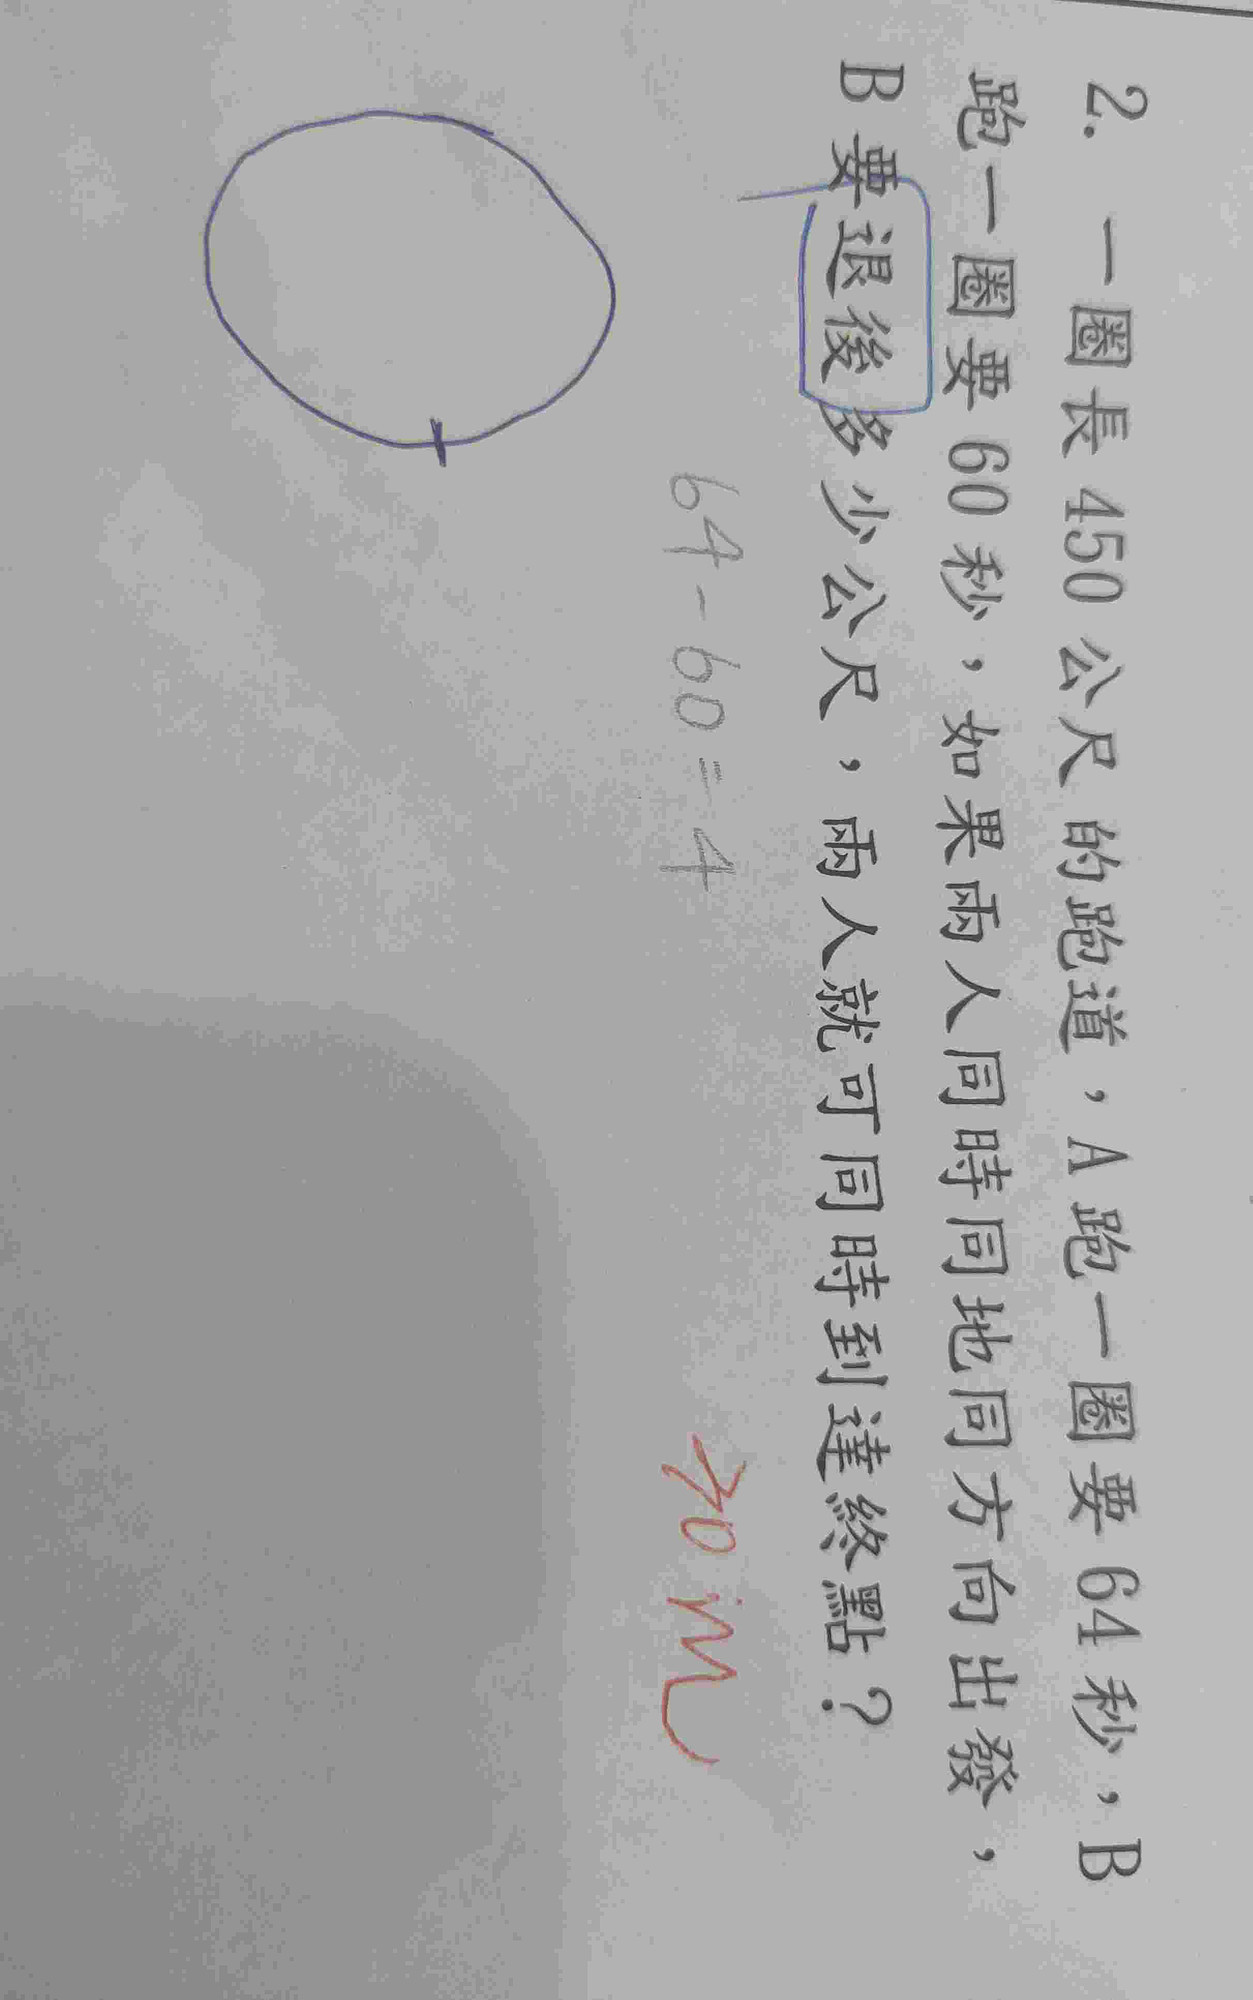 2. 一圈長 450 公尺的跑道，A 跑一圈要 64 秒，B
跑一圈要 60 秒，如果兩人同時同地同方向出發，
B 要退後多少公尺，兩人就可同時到達終點？
64-60=4
30 m